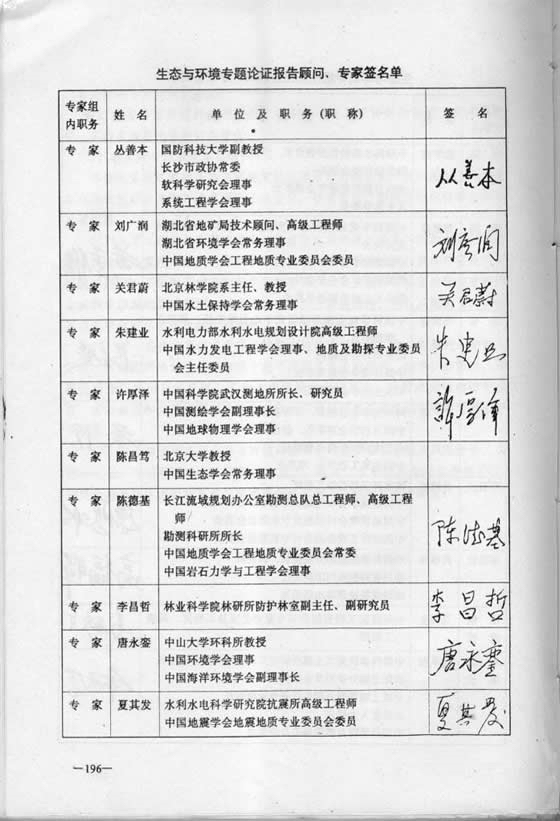 生态与环境专题论证报告顾问、专家签名单
专家组内职务 姓名 单位及职务(职称) 签名
专家 丛善本 国防科技大学副教授
长沙市政协常委
软科学研究会理事
系统工程学会理事
从善本
专家 刘广润 湖北省地矿局技术顾问、高级工程师
湖北省环境学会常务理事
中国地质学会工程地质专业委员会委员
刘广润
专家 关君蔚 北京林学院系主任、教授
中国水土保持学会常务理事
关君蔚
专家 朱建业 水利电力部水利水电规划设计院高级工程师
中国水力发电工程学会理事、地质及勘探专业委员
会主任委员
朱建业
专家 许厚泽 中国科学院武汉测地所所长、研究员
中国测绘学会副理事长
中国地球物理学会理事
許厚泽
专家 陈昌笃 北京大学教授
中国生态学会常务理事
专家 陈德基 长江流域规划办公室勘测总队总工程师、高级工程
师
勘测科研所所长
中国地质学会工程地质专业委员会常委
中国岩石力学与工程学会理事
陈德基
专家 李昌哲 林业科学院林研所防护林室副主任、副研究员 李昌哲
专家 唐永銮 中山大学环科所教授
中国环境学会理事
中国海洋环境学会副理事长
唐永銮
专家 夏其发 水利水电科学研究院抗震所高级工程师
中国地震学会地震地质专业委员会委员
夏其发
—196—